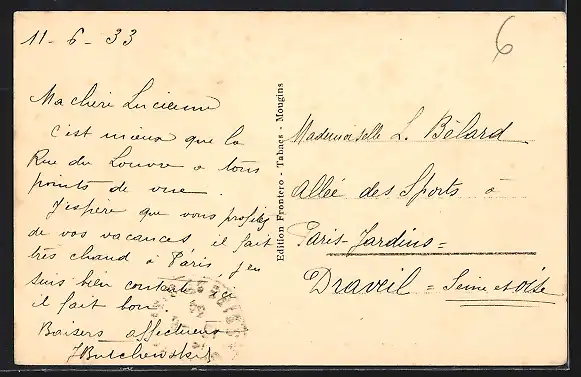 11-6-33
6
Ma chère Lucienne
c'est mieux que la
Rue du Louvre a tous
points de vue.
J'espère que vous profitez
de vos vacances, il fait
très chaud à Paris, j'en
suis bien contente ici
il fait bon.
Baisers affectueux
Edition Frontero - Tabacs - Mougins
Mademoiselle L. Bélard
Allée des Sports a
Paris-Jardins =
Draveil = Seine et Oise